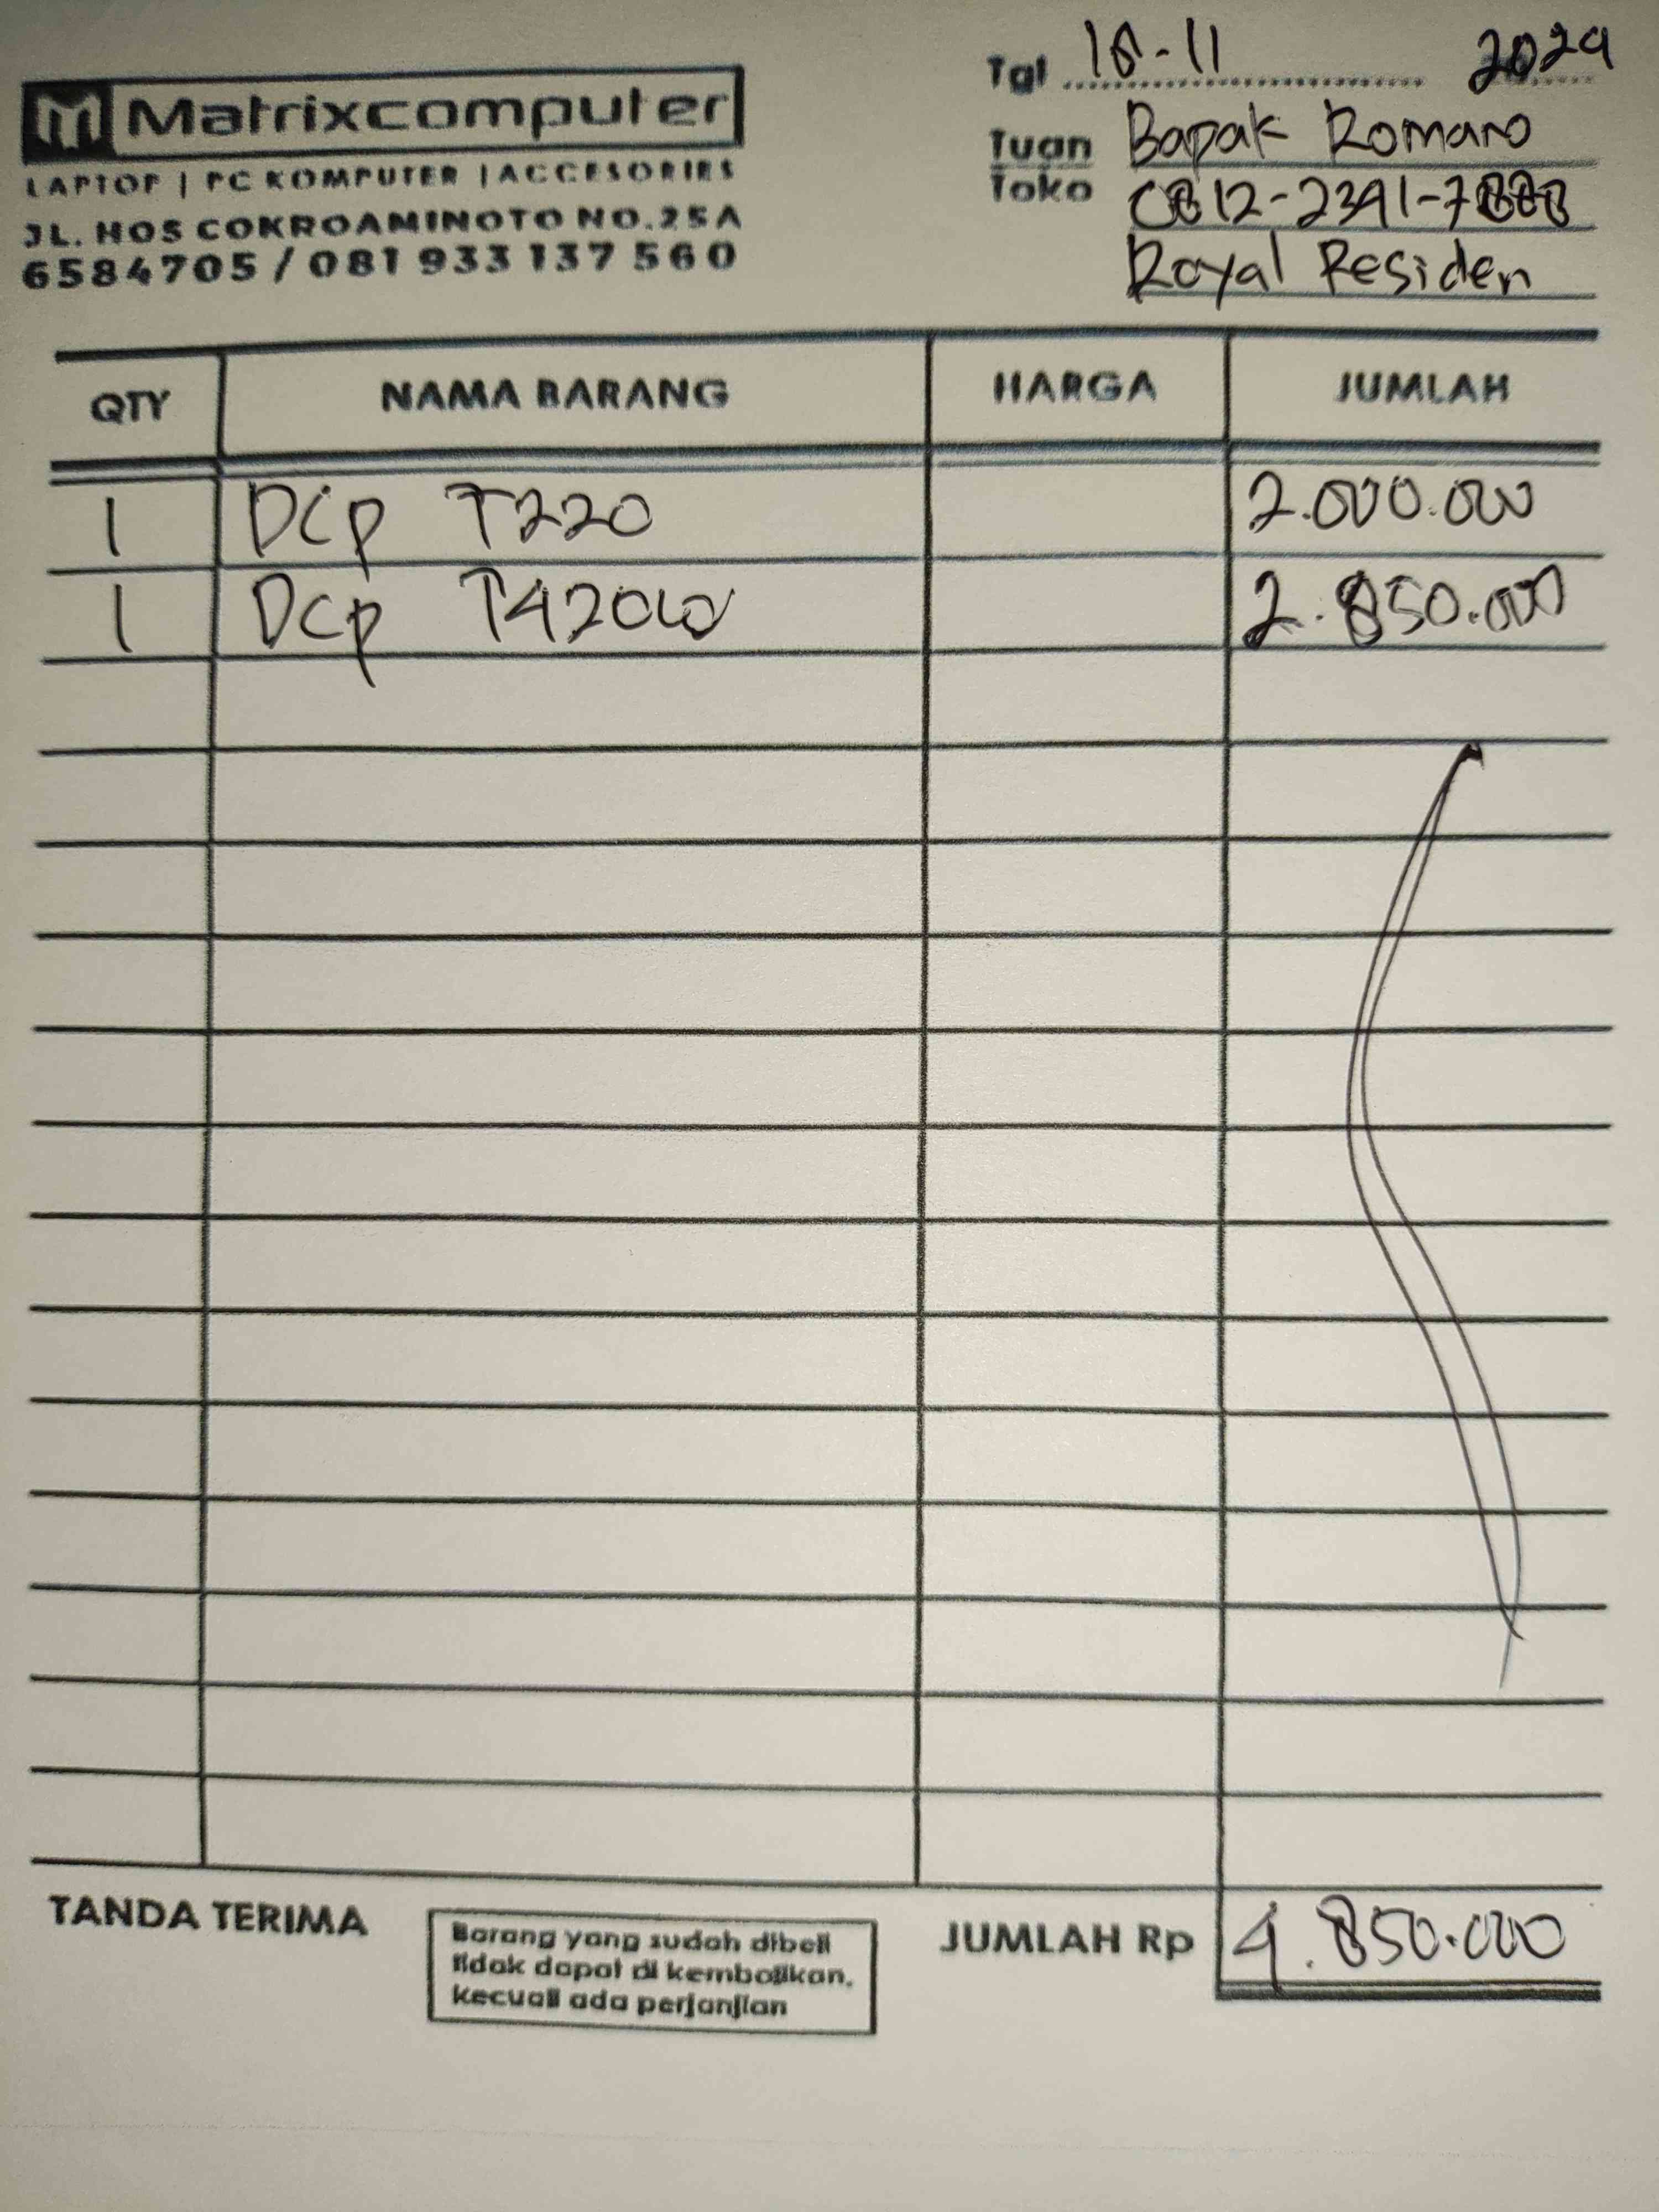 Matrixcomputer
LAPTOP | PC KOMPUTER | ACCESORIES
JL. HOS COKROAMINOTO NO.25A
6584705 / 081 933 137 560
Tgl 18-11 2024
Tuan Bapak Romano
Toko 0812-2341-7888
Royal Residen
QTY NAMA BARANG HARGA JUMLAH
1 Dcp T220 2.000.000
1 Dcp T420W 2.850.000
TANDA TERIMA
Barang yang sudah dibeli
tidak dapat di kembalikan,
kecuali ada perjanjian
JUMLAH Rp 4.850.000